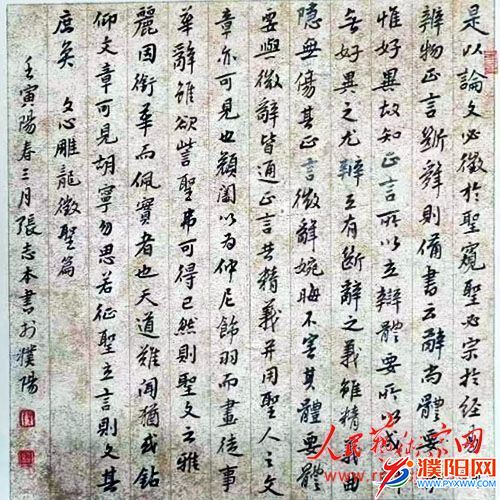 是以論文必徵於聖窺聖必宗於經易
辨物正言斷辭則備書云辭尚體要
惟好異故知正言所以立辯體要所以成
無好異之尤辯立有斷辭之義雖精義曲
隱無傷其正言微辭婉晦不害其體要體
要與微辭皆通正言共精義并用聖人之文
章亦可見也顏闔以為仲尼飾羽而畫徒事
華辭雖欲訾聖弗可得已然則聖文之雅
麗固銜華而佩實者也天道難聞猶或鑽
仰文章可見胡寧勿思若征聖立言則文其
庶矣 文心雕龍徵聖篇
壬寅陽春三月張志本書於濮陽
濮阳网
WWW.PYXWW.COM